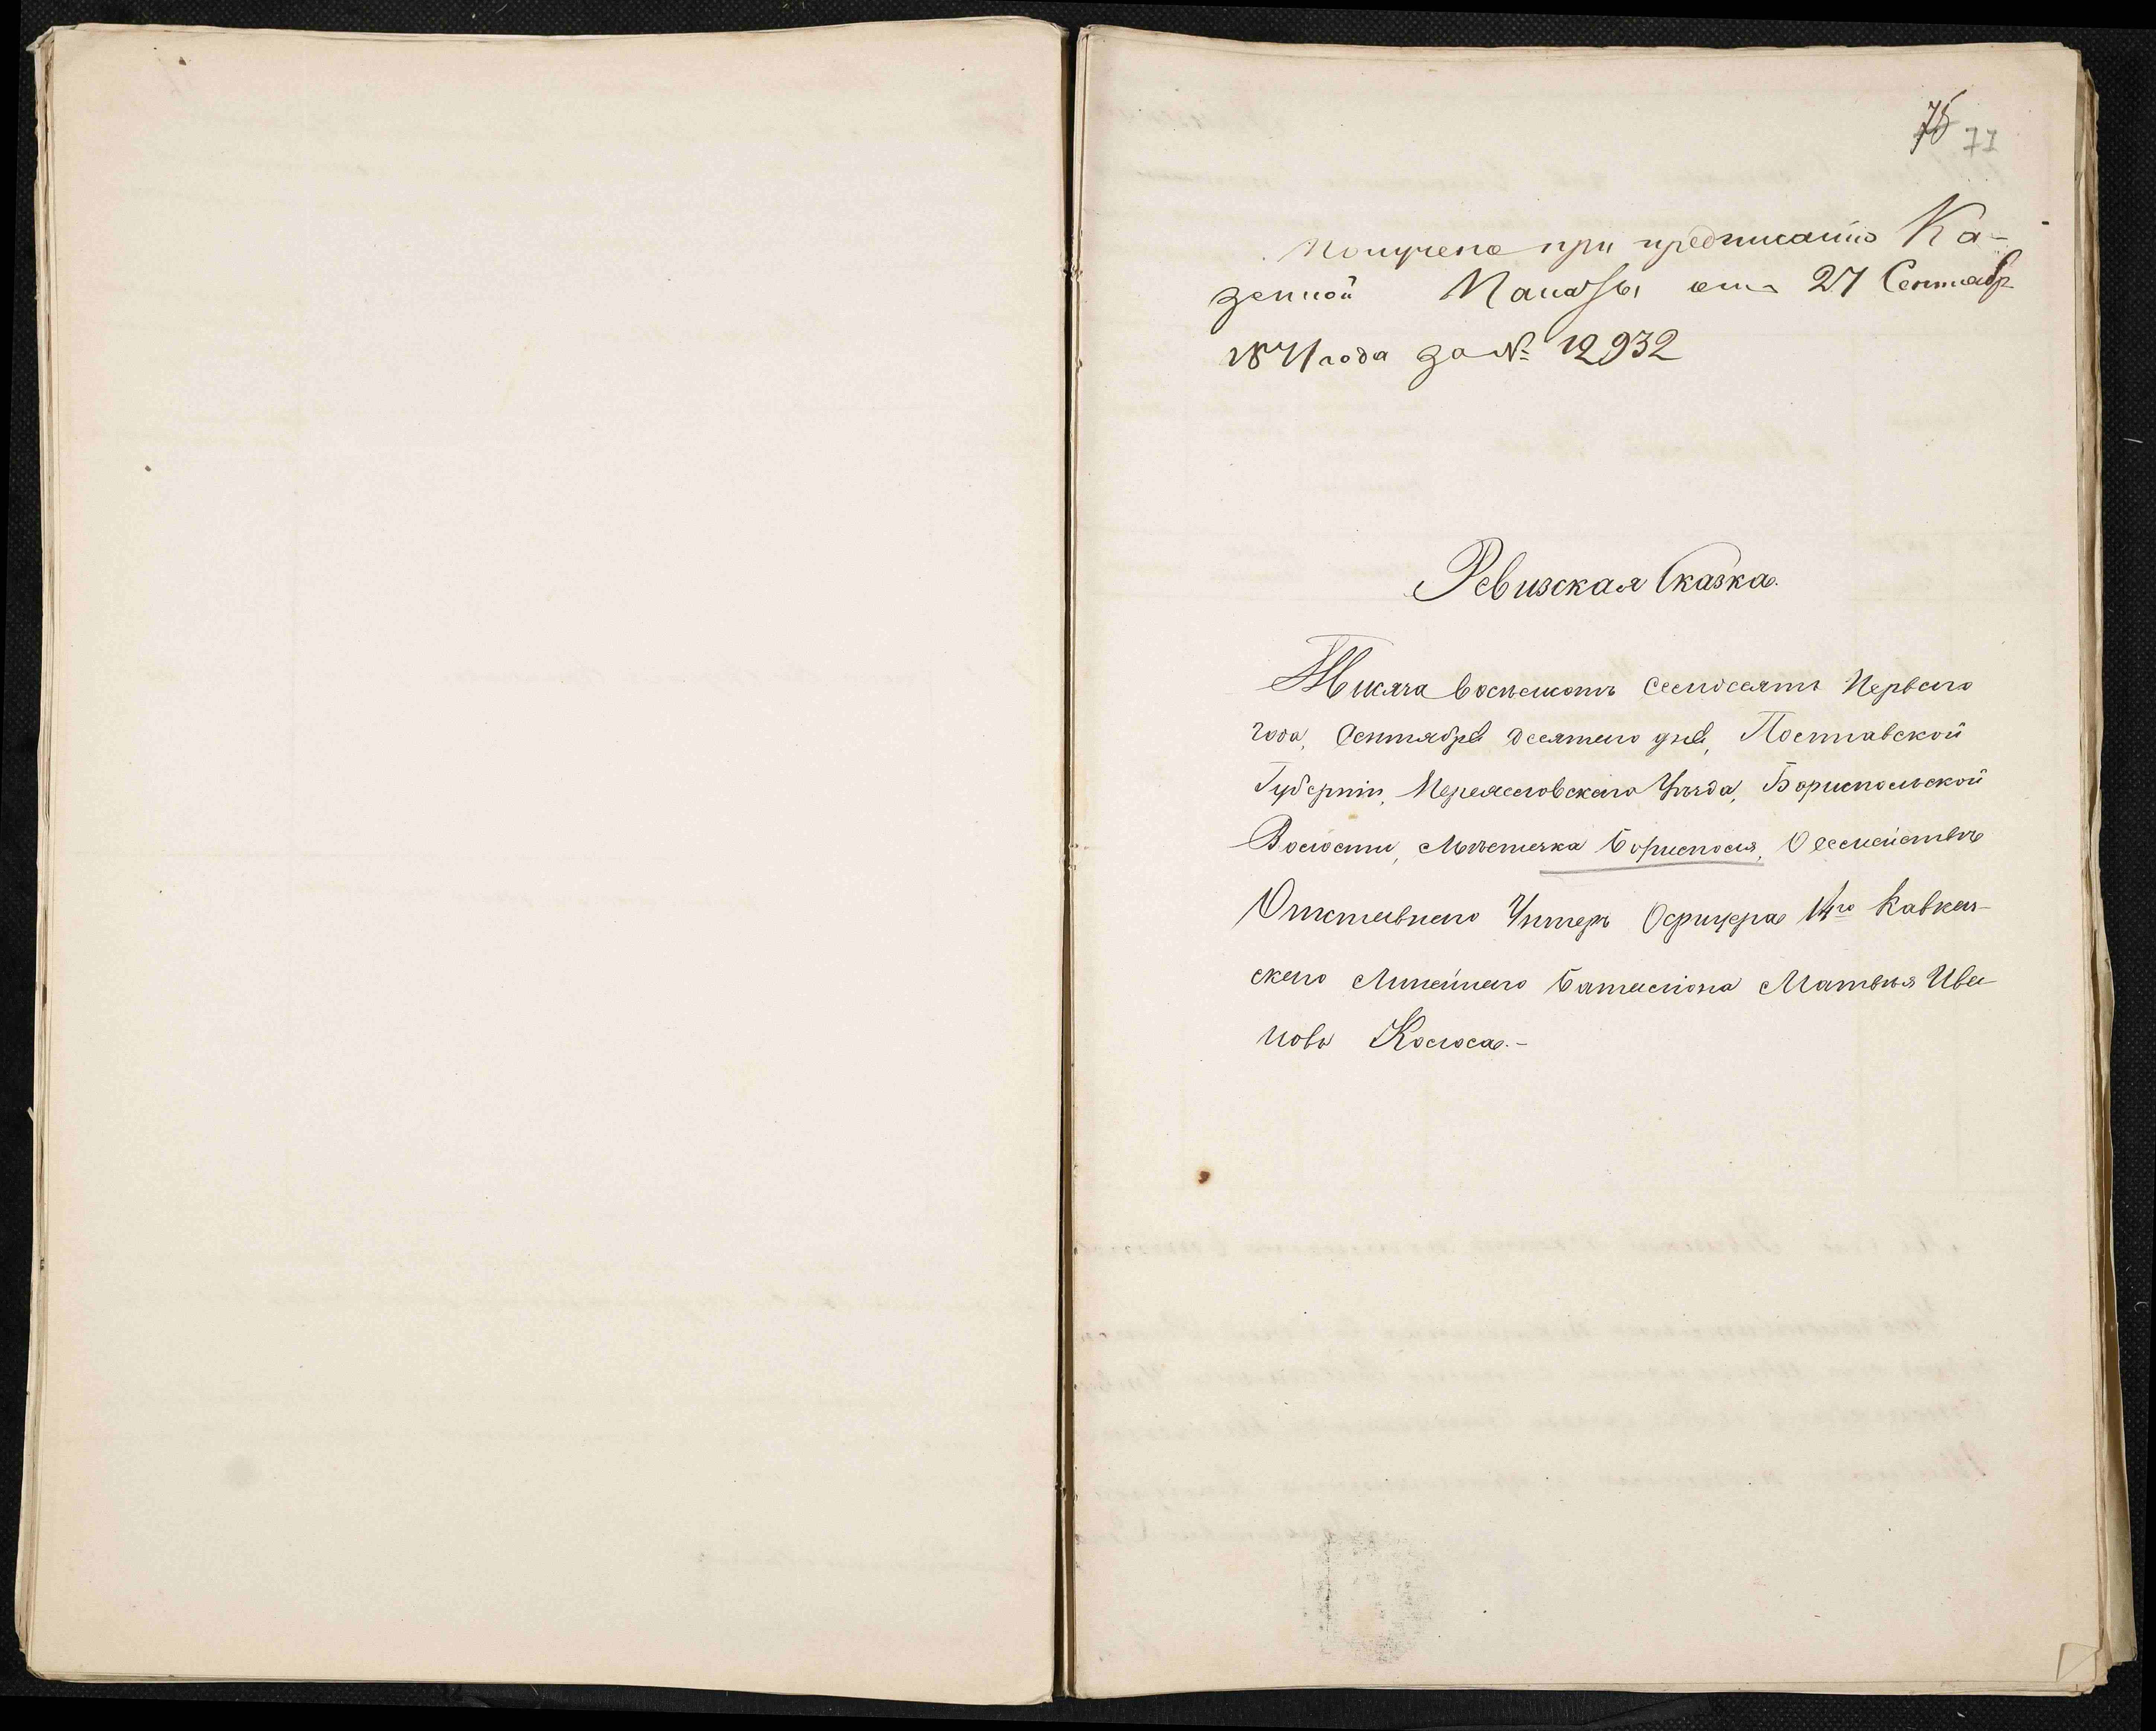 75 71
Получена при предписанiи Ка-
зенной Палаты отъ 27 Сентябр
1871 года за № 12932
Ревизская Сказка.
Тысяча восемсотъ семдесятъ Перваго
года, Сентября десятого дня, Полтавской
Губернiи, Переяславского Уѣзда, Бориспольской
Волости, Мѣстечка Борисполя, О семействѣ
Отставнаго Унтеръ Офицера 14го Кавказ-
скаго Линейнаго Баталiона Матвѣя Ива
нова Колоса.-